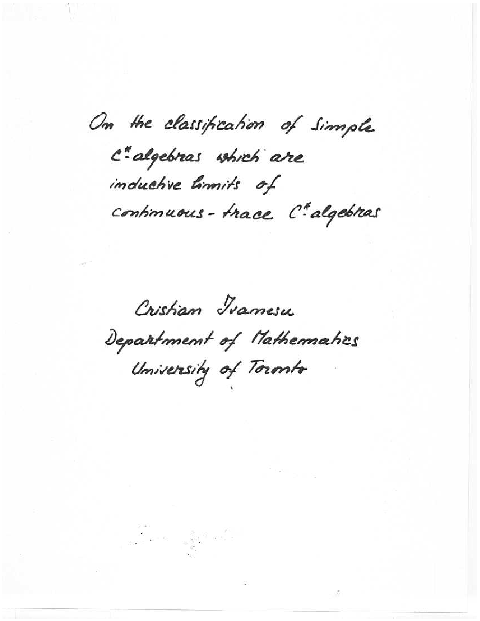 On the classification of simple
C*-algebras which are
inductive limits of
continuous-trace C*-algebras
Cristian Ivanescu
Department of Mathematics
University of Toronto